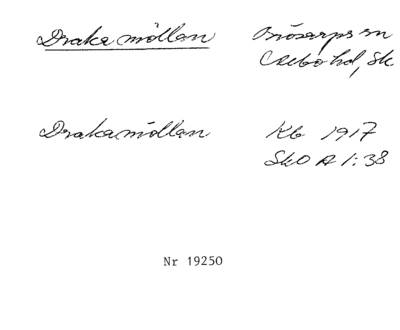 Drakamöllan
Brösarps sn
Albo hd, Sk
Drakamöllan
Kb 1917
SkO A 1:38
Nr 19250